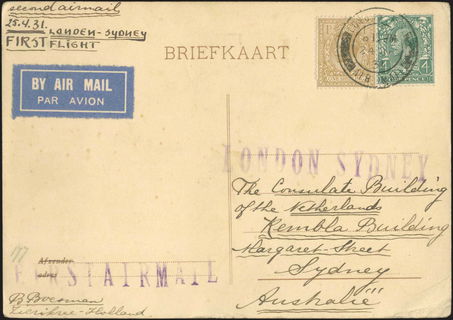 second airmail
25.4.31. LONDEN-SYDNEY
FIRST FLIGHT
BRIEFKAART
BY AIR MAIL
PAR AVION
LONDON SYDNEY
The Consulate Building
of the Netherlands
Kembla Building
Margaret-Street
Sydney
Australië
Afzender
adres
FIRST AIRMAIL
B. Boesman
Holland